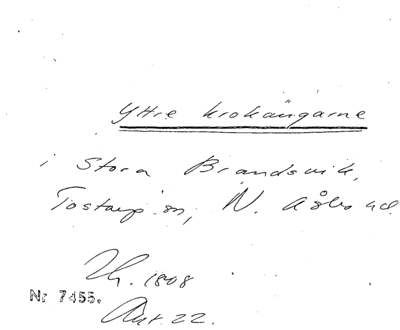 Yttre krokängarne
i Stora Brandsvik,
Tostarp sn, N. Åsbo hd.
Th. 1808
Nr 7455.
Ant. 22.